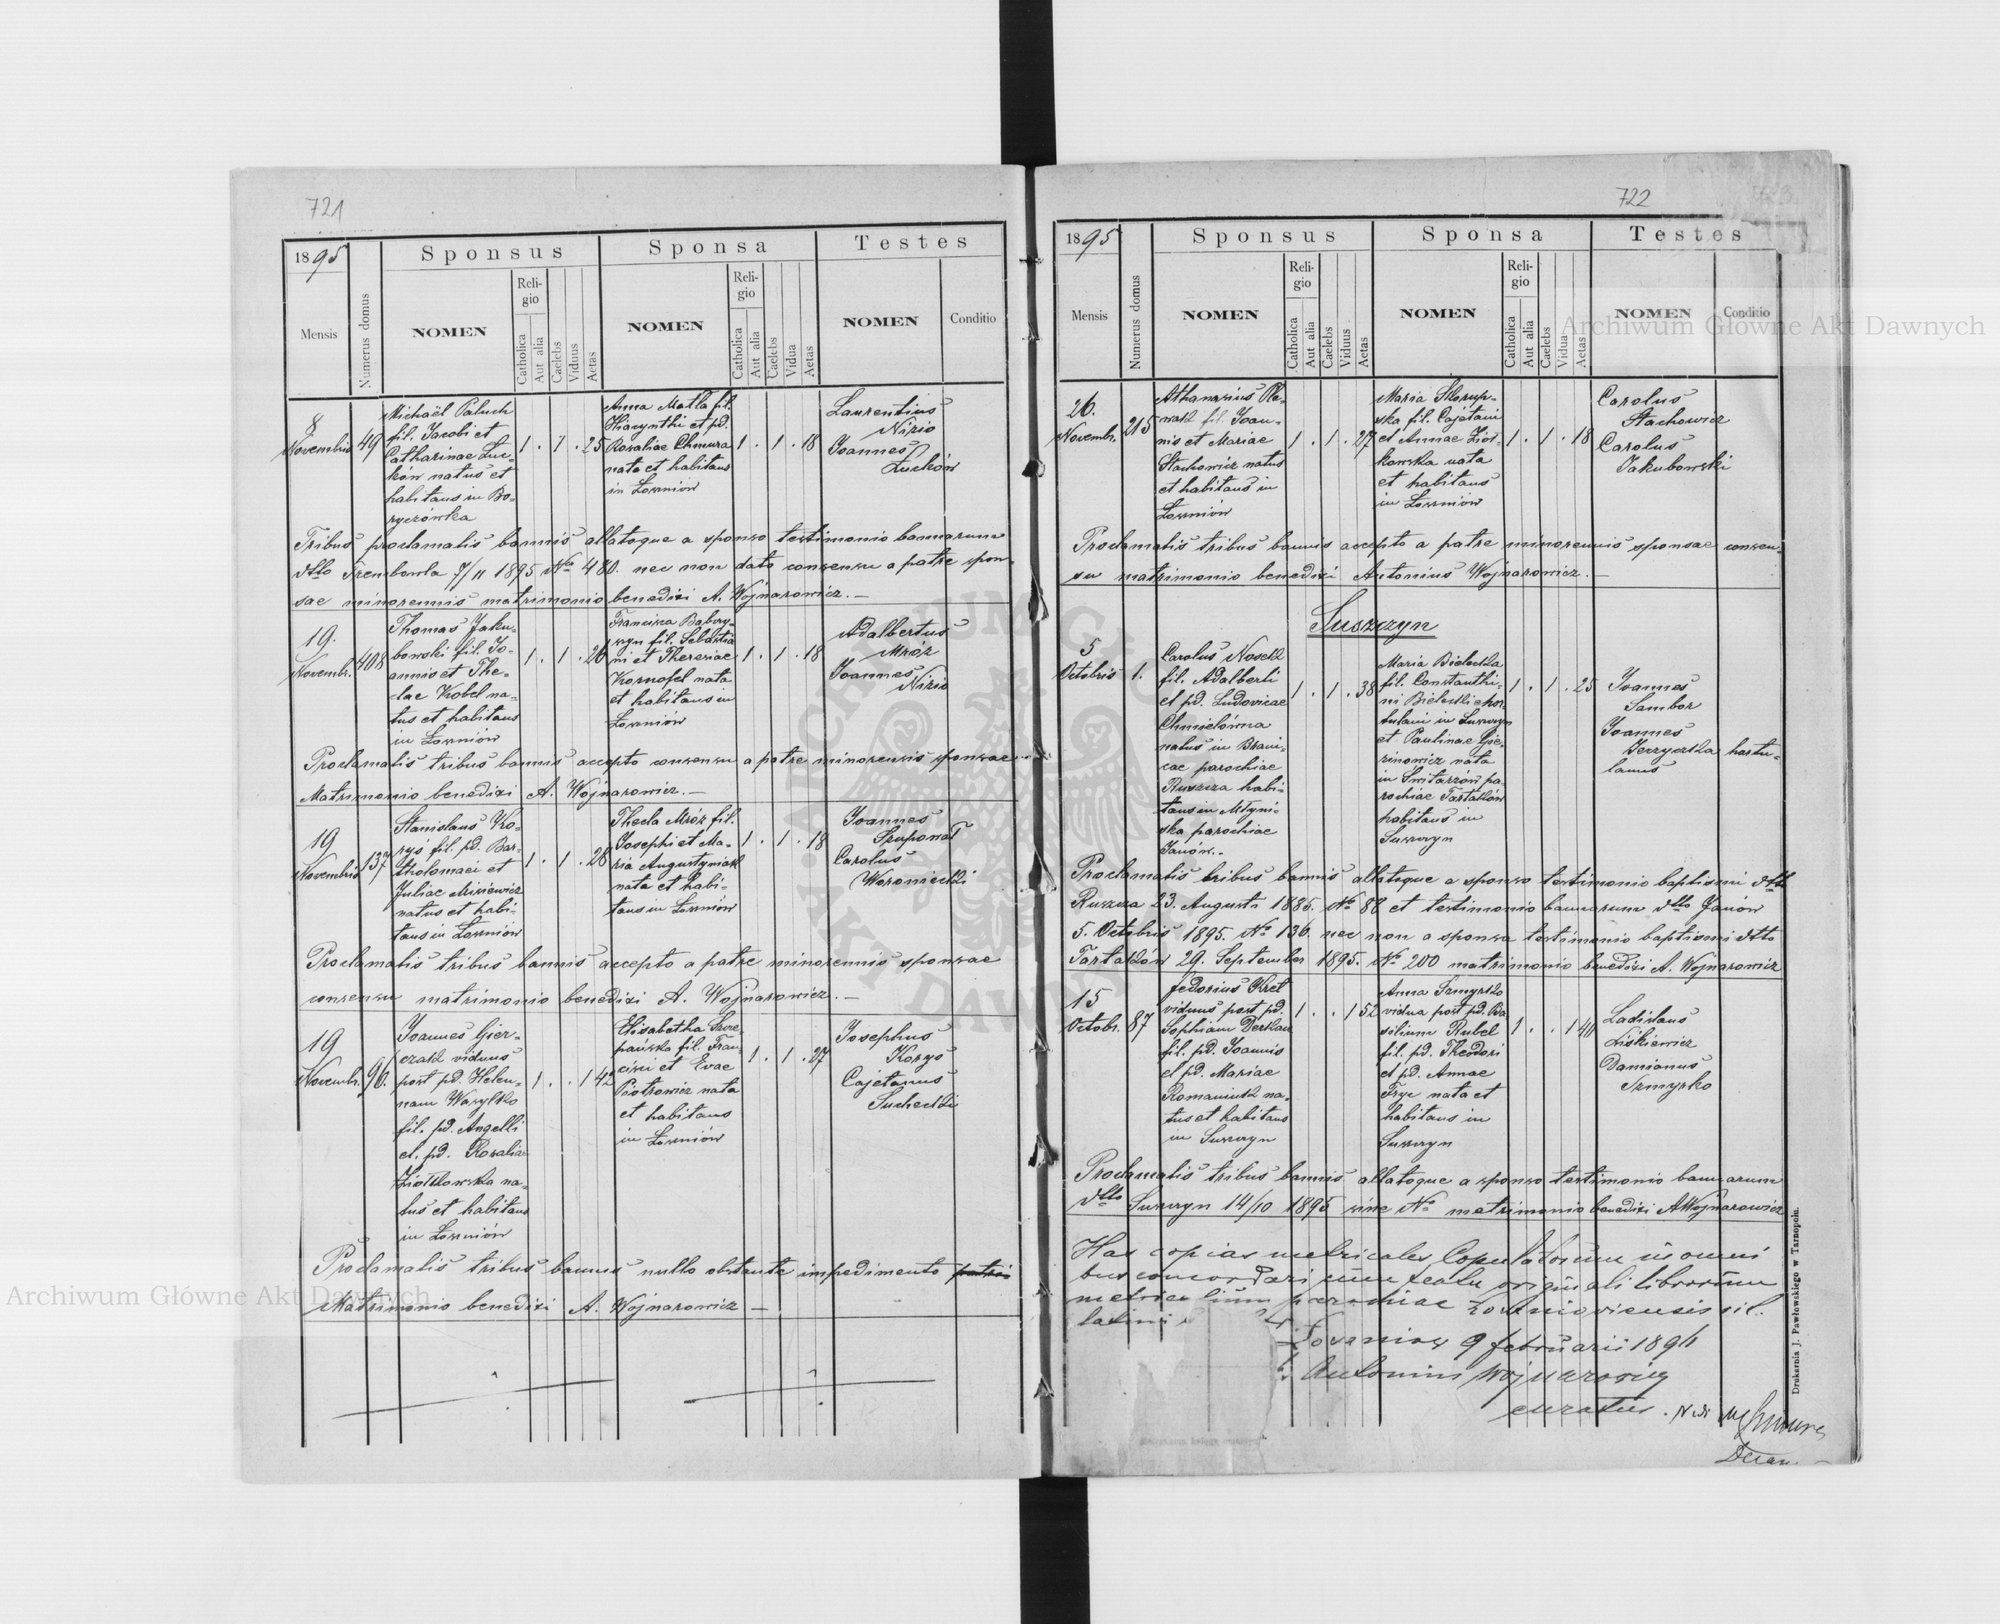 721
1895
Sponsus
Sponsa
Testes
Mensis
Numerus domus
NOMEN
Religio
Catholica
Aut alia
Caelebs
Viduus
Aetas
NOMEN
Religio
Catholica
Aut alia
Caelebs
Vidua
Aetas
NOMEN
Conditio
8
Novembris
49
Michaël Paluch
fil. Jacobi et
Catharinae Luc-
ków natus et
habitans in Bo-
ryczówka
1 . 1 . 25
Anna Matla fil.
Hiacynthi et pd.
Rosaliae Chmura
nata et habitans
in Łosniów
1 . 1 . 18
Laurentius
Nizio
Joannes
Luckow
Tribus proclamatis bannis allatoque a sponso testimonio bannorum
dtto Trembowla 7/11 1895 No 480. nec non dato consensu a patre spon-
sae minorennis matrimonio benedixi A. Wojnarowicz. —
19.
Novembr.
408
Thomas Jaku-
bowski fil. Jo-
annis et The-
clae Kobel na-
tus et habitans
in Łosniów
1 . 1 . 26
Francisca
fil. Sebastia
ni et Theresiae
nata
et habitans in
Łosniów
1 . 1 . 18
Adalbertus
Mróz
Joannes
Nizio
Proclamatis tribus bannis accepto consensu a patre minorennis sponsae
Matrimonio benedixi A. Wojnarowicz. —
19
Novembris
137
Stanislaus Ko-
ryś fil. pd. Bar-
tholomaei et
Juliae Misiewicz
natus et habi-
tans in Łosniów
1 . 1 . 28
Thecla Mróz fil.
Josephi et Ma-
ria Augustyniak
nata et habi-
tans in Łosniów
1 . 1 . 18
Joannes
Szuponat
Carolus
Woroniecki
Proclamatis tribus bannis accepto a patre minorennis sponsae
consensu matrimonio benedixi A. Wojnarowicz. —
19
Novembr.
96.
Joannes Gier-
czak viduus
post pd. Hele-
nam Wasylko
fil. pd. Angelli
et pd. Rosalia
Ziółkowska na-
tus et habitans
in Łosniów
1 . . 1 42
Elisabetha Szcze-
pańska fil. Fran-
cisci et Evae
Piotrowicz nata
et habitans
in Łosniów
1 . 1 . 27
Josephus
Koryś
Cajetanus
Suchecki
Proclamatis tribus bannis nullo obstante impedimento
Matrimonio benedixi A. Wojnarowicz —
722
1895
Sponsus
Sponsa
Testes
Mensis
Numerus domus
NOMEN
Religio
Catholica
Aut alia
Caelebs
Viduus
Aetas
NOMEN
Religio
Catholica
Aut alia
Caelebs
Vidua
Aetas
NOMEN
Conditio
26.
Novembr.
215
Athanasius
fil. Joan-
nis et Mariae
Stachowicz natus
et habitans in
Łosniów
1 . 1 . 27
Maria Skorup-
ska fil. Cajetani
et Annae Ziół-
kowska nata
et habitans
in Łosniów
1 . 1 . 18
Carolus
Stachowicz
Carolus
Jakubowski
Proclamatis tribus bannis accepto a patre minorennis sponsae consen-
su matrimonio benedixi Antonius Wojnarowicz. —
Suszczyn
5
Octobris
1.
Carolus Nosek
fil. Adalberti
et pd. Ludovicae
Chmielówna
natus in Brani-
cae parochiae
Ruszcza habi-
tans in Młyni-
ska parochiae
Janów. -
1 . 1 . 38
Maria Bielecka
fil. Constanthi-
ni Bielecki hor-
tulani in Suszczyn
et Paulinae Gie-
zinowicz nata
in Switarzów pa-
rochiae Tartaków
habitans in
Suszczyn
1 . 1 . 25
Joannes
Sambor
Joannes
Jerzycka hortu-
lanus
Proclamatis tribus bannis allatoque a sponso testimonio baptismi dtto
Ruszcza 23. Augusti 1885. No 88 et testimonio bannorum dtto Janów
5. Octobris 1895. No 136. nec non a sponsa testimonio baptismi dtto
Tartaków 29. September 1895. No 200 matrimonio benedixi A. Wojnarowicz
15
Octobr.
87
Fedorius Kret
viduus post pd.
Sophiam Derkacz
fil. pd. Joannis
et pd. Mariae
Romaniuk na-
tus et habitans
in Suszczyn
1 . . 1 52
Anna Szmyrko
vidua post pd. Ba
silium Rubel
fil. pd. Theodori
et pd. Annae
Fryc nata et
habitans in
Suszczyn
1 . . 1 40
Ladislaus
Liskiewicz
Damianus
Szmyrko
Proclamatis tribus bannis allatoque a sponso testimonio bannorum
dtto Suszczyn 14/10 1895 sine No matrimonio benedixi A Wojnarowicz
Has copias metricales Copulatorum in omni
bus concordari cum textu originali librorum
metricalium parochiae Łosnioviensis rit.
latini
Łosniow 9 februarii 1896
Antonius Wojnarowicz
curatus.
Vidi
Decan.
Drukarnia J. Pawłowskiego w Tarnopolu.
Archiwum Główne Akt Dawnych
Archiwum Główne Akt Dawnych
ARCHIWUM GŁÓWNE AKT DAWNYCH